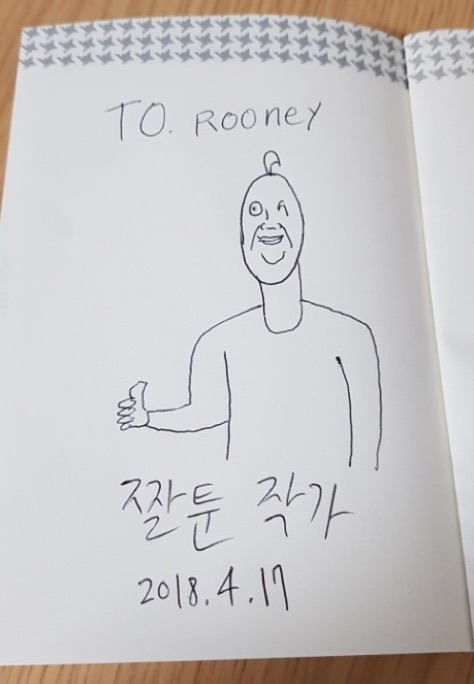 TO. Rooney
짤툰 작가
2018.4.17